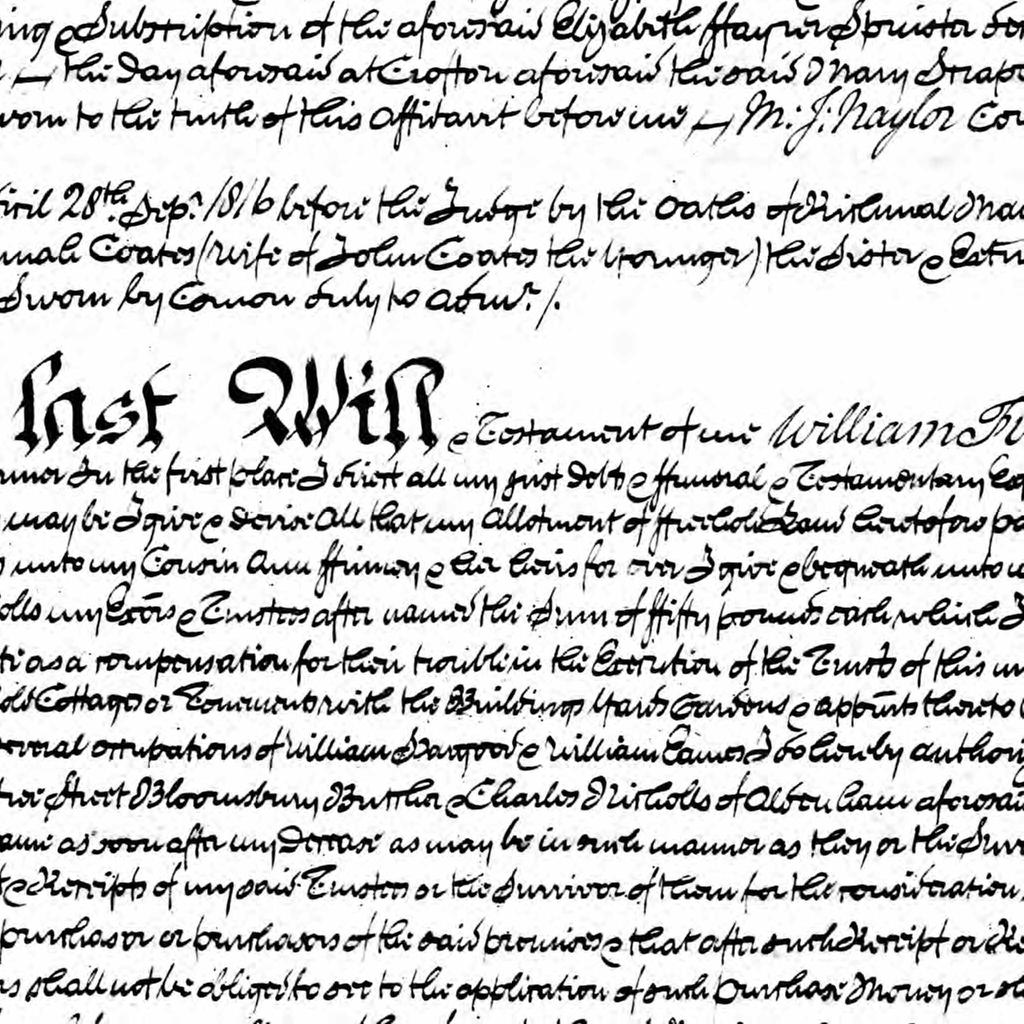 ing & Subscription of the aforesaid Elizabeth ffayrer Spinster
the day aforesaid at Crofton aforesaid the said Mary
worn to the truth of this affidavit before me M: J: Naylor
28th Sepr. 1816 before the Judge by the Oaths of Richmal
Coates (wife of John Coates the Younger) the Sister &
Sworn by Comon duly to admr. /.
last Will & Testament of me William
In the first place I direct all my just debts & ffuneral & Testamentary
may be I give & devise All that my Allotment of ffreehold Land heretofore
unto my Cousin Ann ffinney & her heirs for ever I give & bequeath unto
olls my Exors & Trustees after named the Sum of ffifty pounds each, which I
as a compensation for their trouble in the Execution of the Trusts of this
old Cottages or Tenements with the Buildings Yards Gardens & appurts thereto
several occupations of William & William Eames I do hereby
Street Bloomsbury Butcher & Charles Nicholls of Aldenham aforesaid
ame as soon after my Decease as may be in such manner as they or the
& Receipts of my said Trustees or the Survivor of them for the consideration
purchaser or purchasers of the said premises & that after such Receipt or
rs shall not be obliged to see to the application of such Purchase Money or